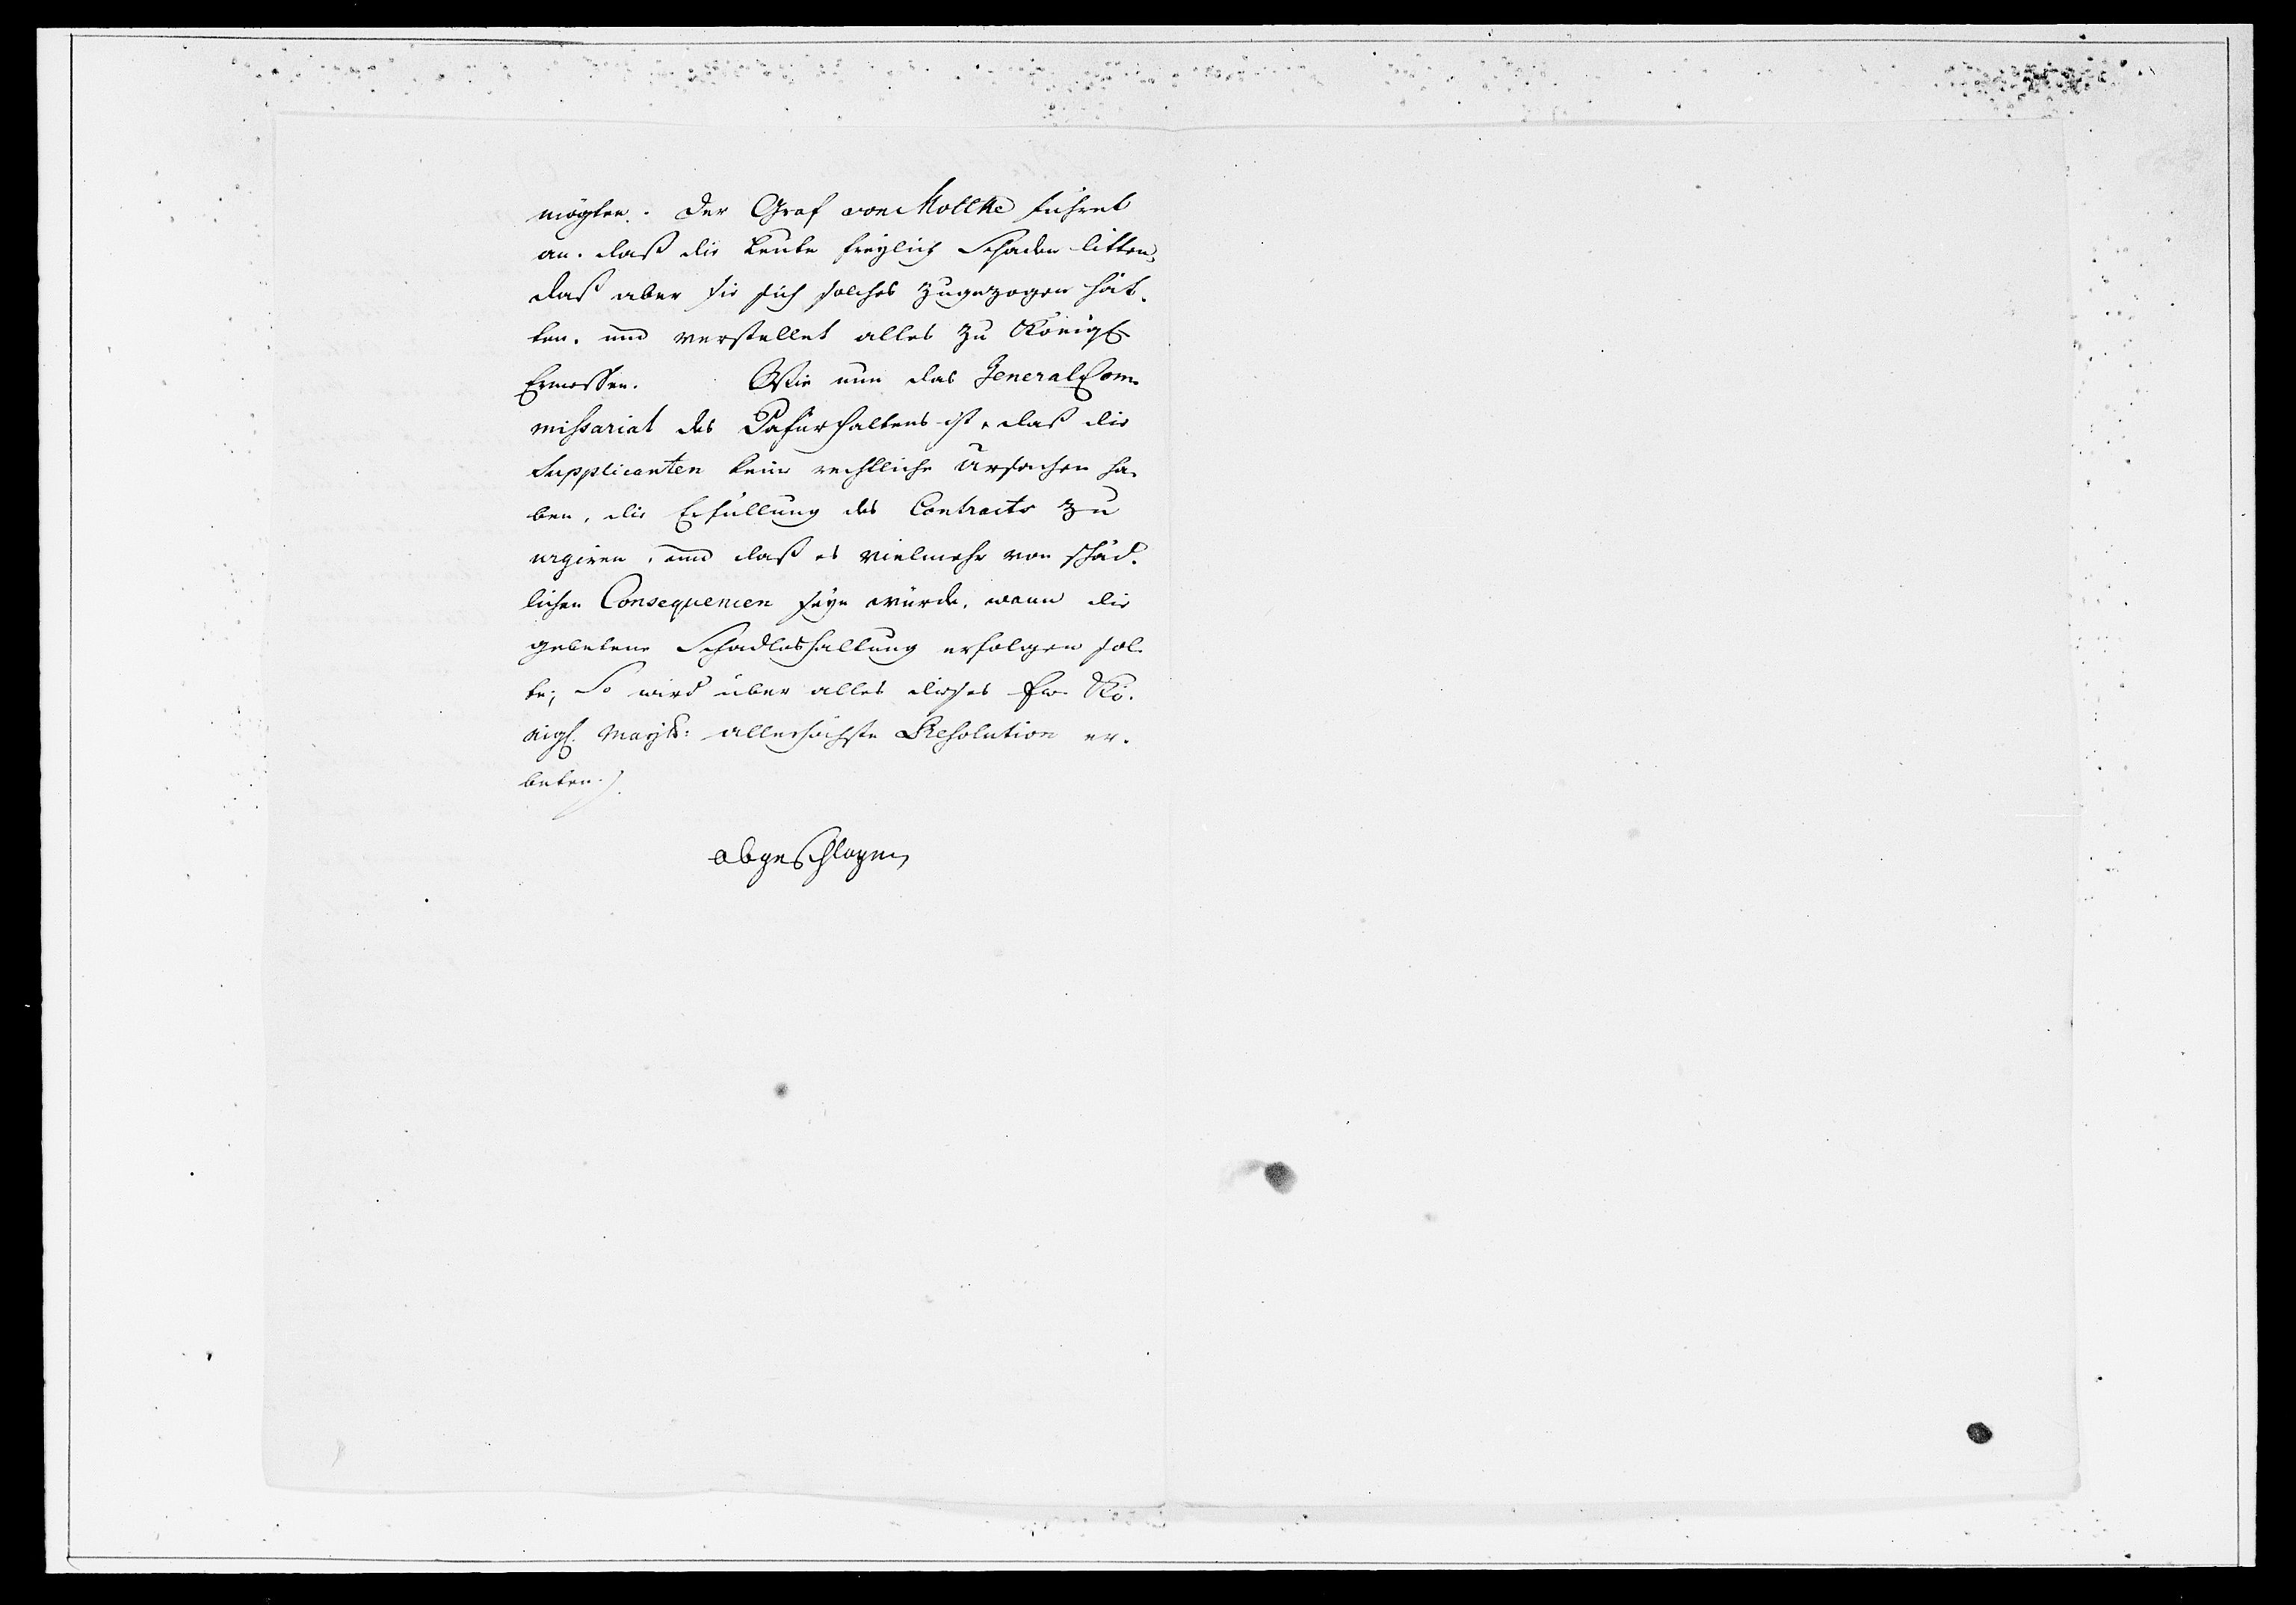 möchten. Der Graf von Moltke führet
an. daß die Leute freylich Schaden litten,
daß aber sie sich solches zugezogen hät-
ten. und verstellet alles zu Königl.
Ermessen. Wie nun das General Com-
missariat des Dafürhaltens ist, daß die
Supplicanten keine rechtliche Ursachen ha-
ben, die Erfüllung des Contracts zu
urgiren, und daß es vielmehr von schäd-
lichen Consequencen seyn würde, wann die
gebetene Schadloshaltung erfolgen sol-
te; So wird über alles dieses Ew. Kö-
nigl. Maytt: allerhöchste Resolution er-
beten.
abgeschlagen